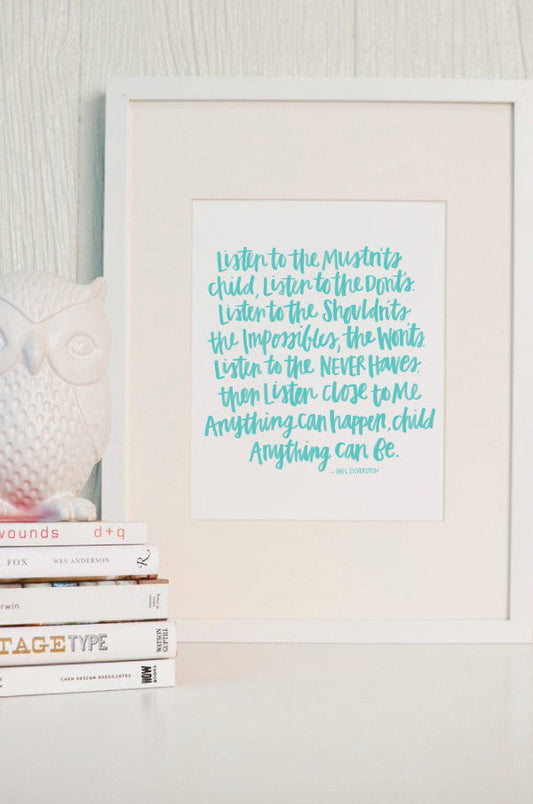 Listen to the Mustn'ts
child, Listen to the Don'ts.
Listen to the Shouldn'ts
the Impossibles, the Won'ts.
Listen to the NEVER Haves
then Listen close to Me
Anything can happen, child
Anything can Be.
- SHEL SILVERSTEIN
wounds d+q
FOX WES ANDERSON R
rwin
TAGETYPE WATSON GUPTILL
CHEN DESIGN ASSOCIATES HOW BOOKS